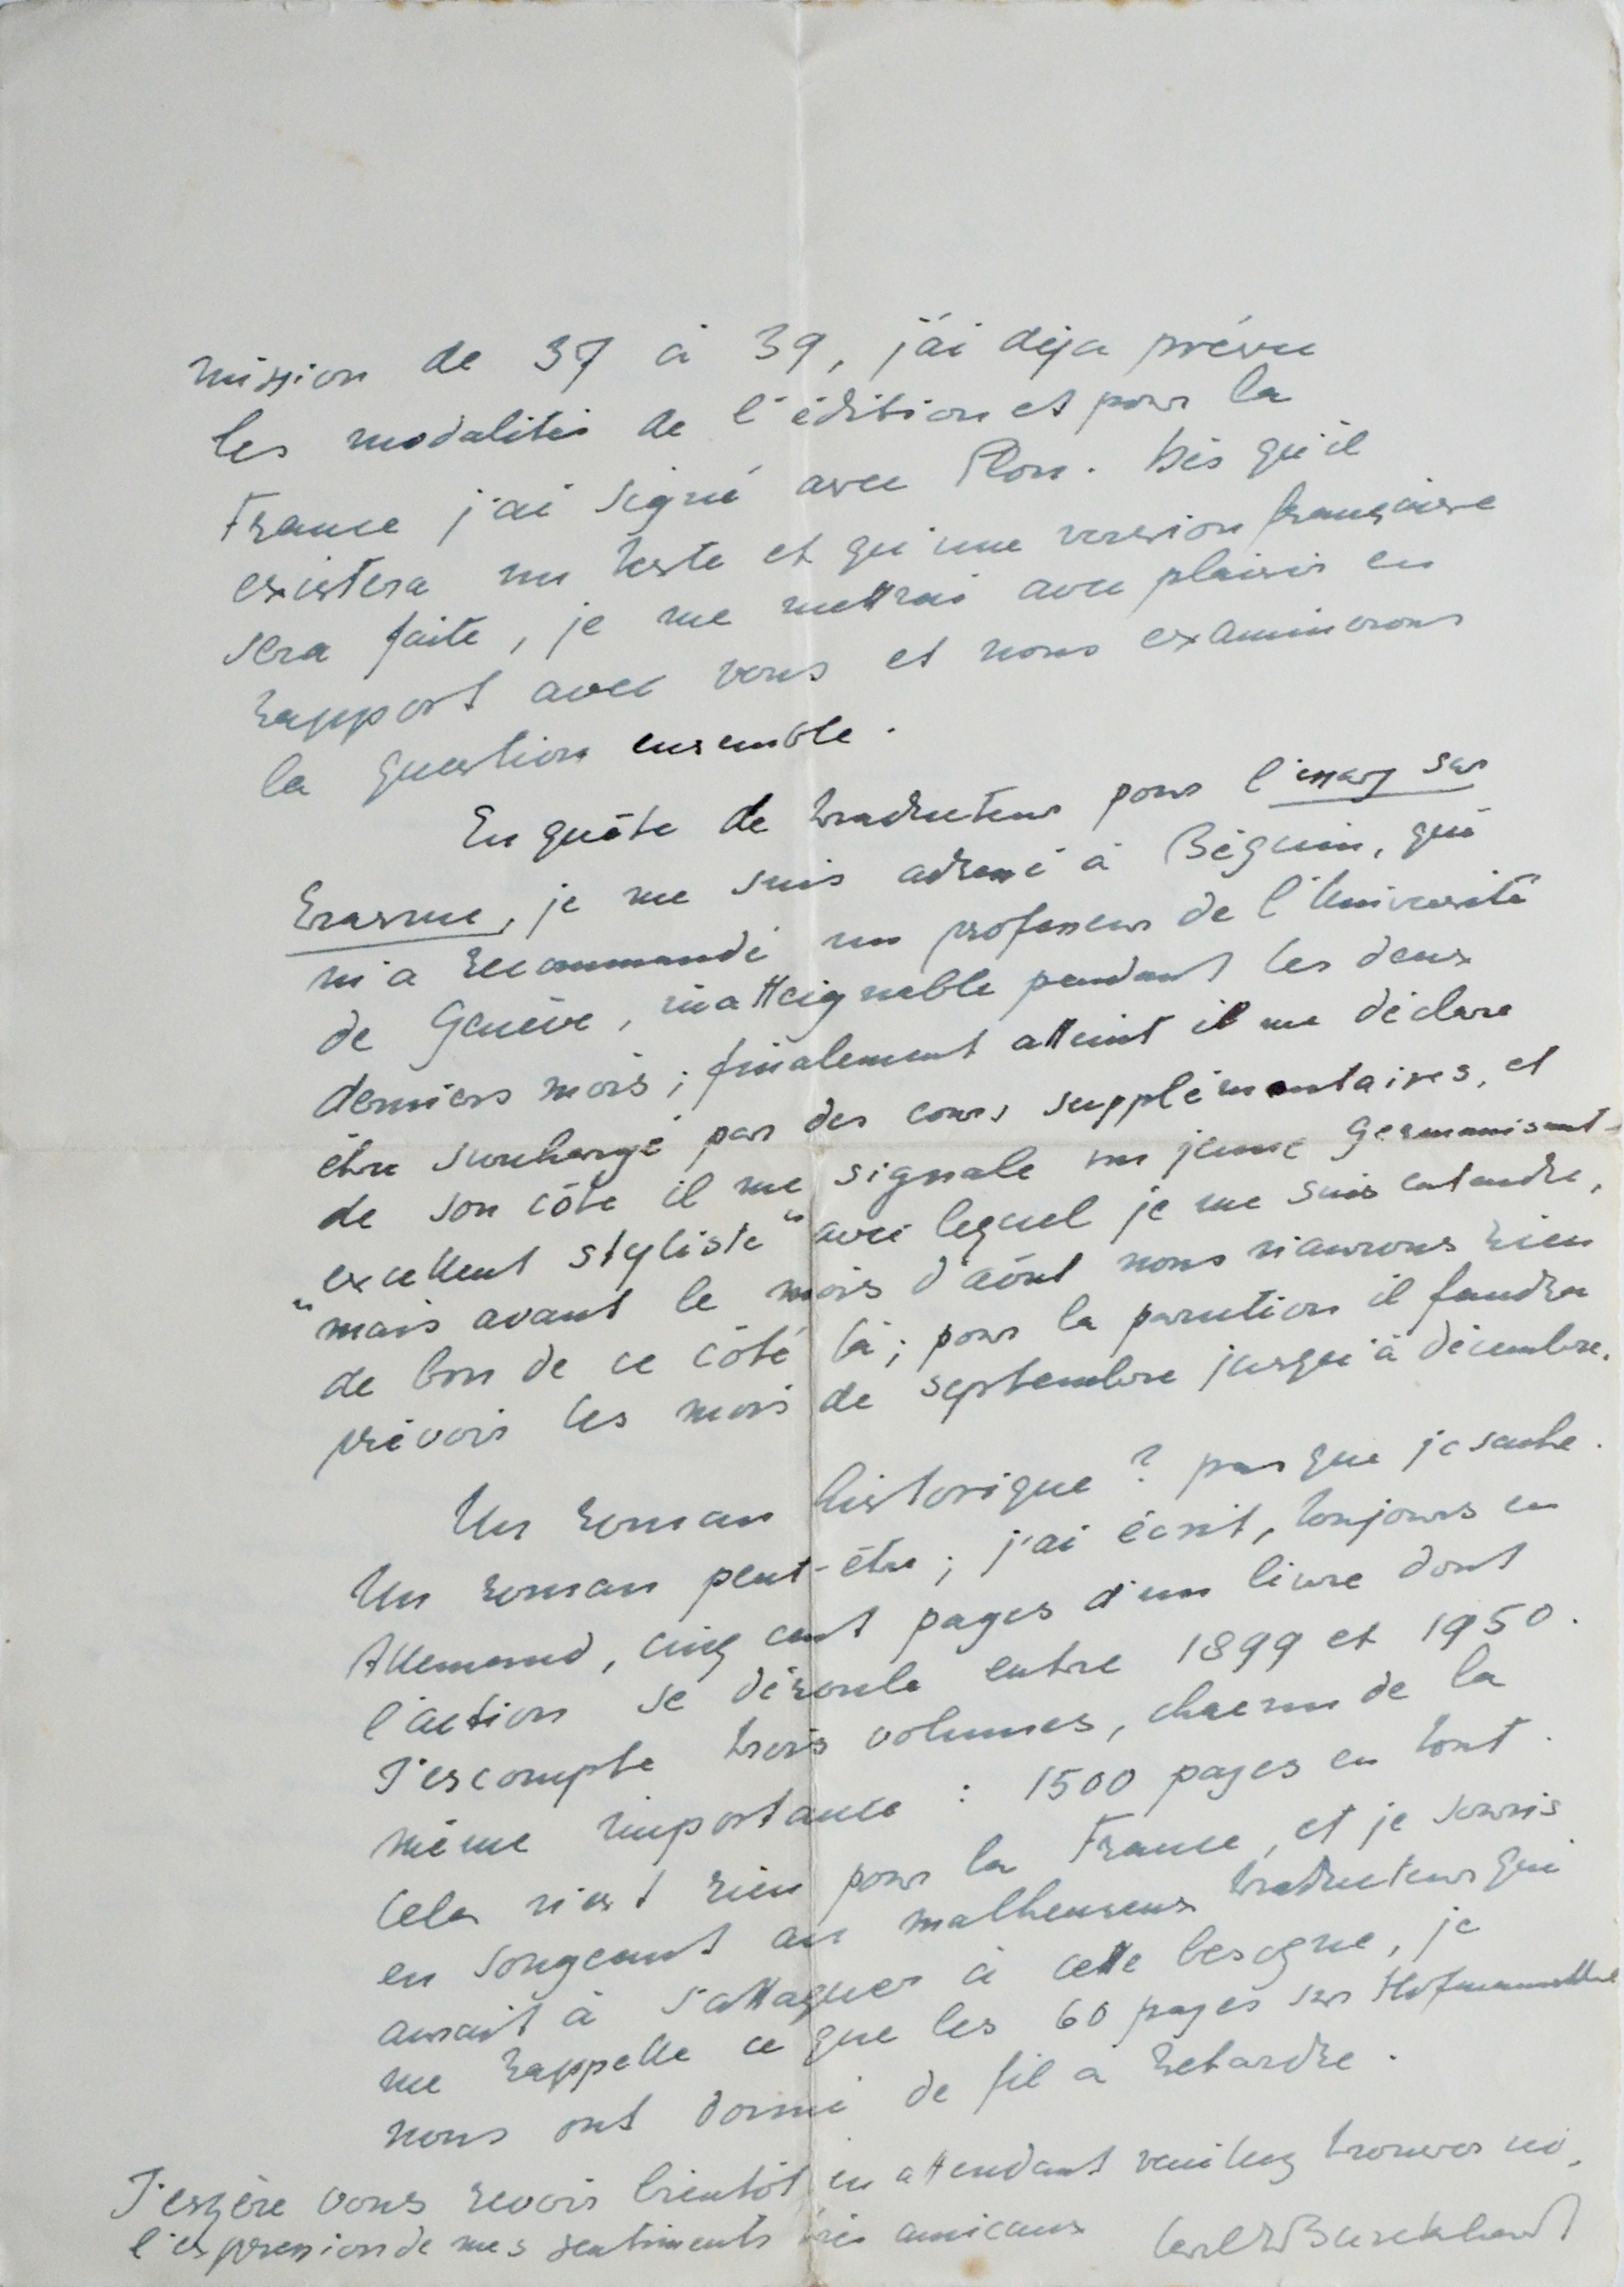 mission de 37 à 39, j'ai déja prévu
les modalités de l'édition et pour la
France j'ai signé avec Plon. Dès qu'il
existera un texte et qu'une version française
sera faite, je me mettrai avec plaisir en
rapport avec vous et nous examinerons
la question ensemble.
En quête de traducteur pour l'essay sur
Erasme, je me suis adressé à Béguin, qui
m'a recommandé un professeur de l'Université
de Genève, inatteignable pendant les deux
derniers mois; finalement atteint il me déclare
être surchargé par des cours supplémentaires, et
de son côté il me signale un jeune germanisant-
"excellent styliste" avec lequel je me suis entendre,
mais avant le mois d'août nous n'aurons rien
de bon de ce côté là; pour la parution il faudra
prévoir les mois de septembre jusqu'à décembre.
Un roman historique? pas que je sache.
Un roman peut-être; j'ai écrit, toujours en
Allemand, cinq cent pages d'un livre dont
l'action se déroule entre 1899 et 1950.
J'escompte trois volumes, chacun de la
même importance: 1500 pages en tout.
Cela n'est rien pour la France, et je souris
en songeant au malheureux traducteur qui
aurait à s'attaquer à cette besogne, je
me rappelle ce que les 60 pages sur Hofmannsthal
nous ont donné de fil à retordre.
J'espère vous revoir bientôt, en attendant veuillez trouver ici,
l'expression de mes sentiments très amicaux Carl J Burckhardt